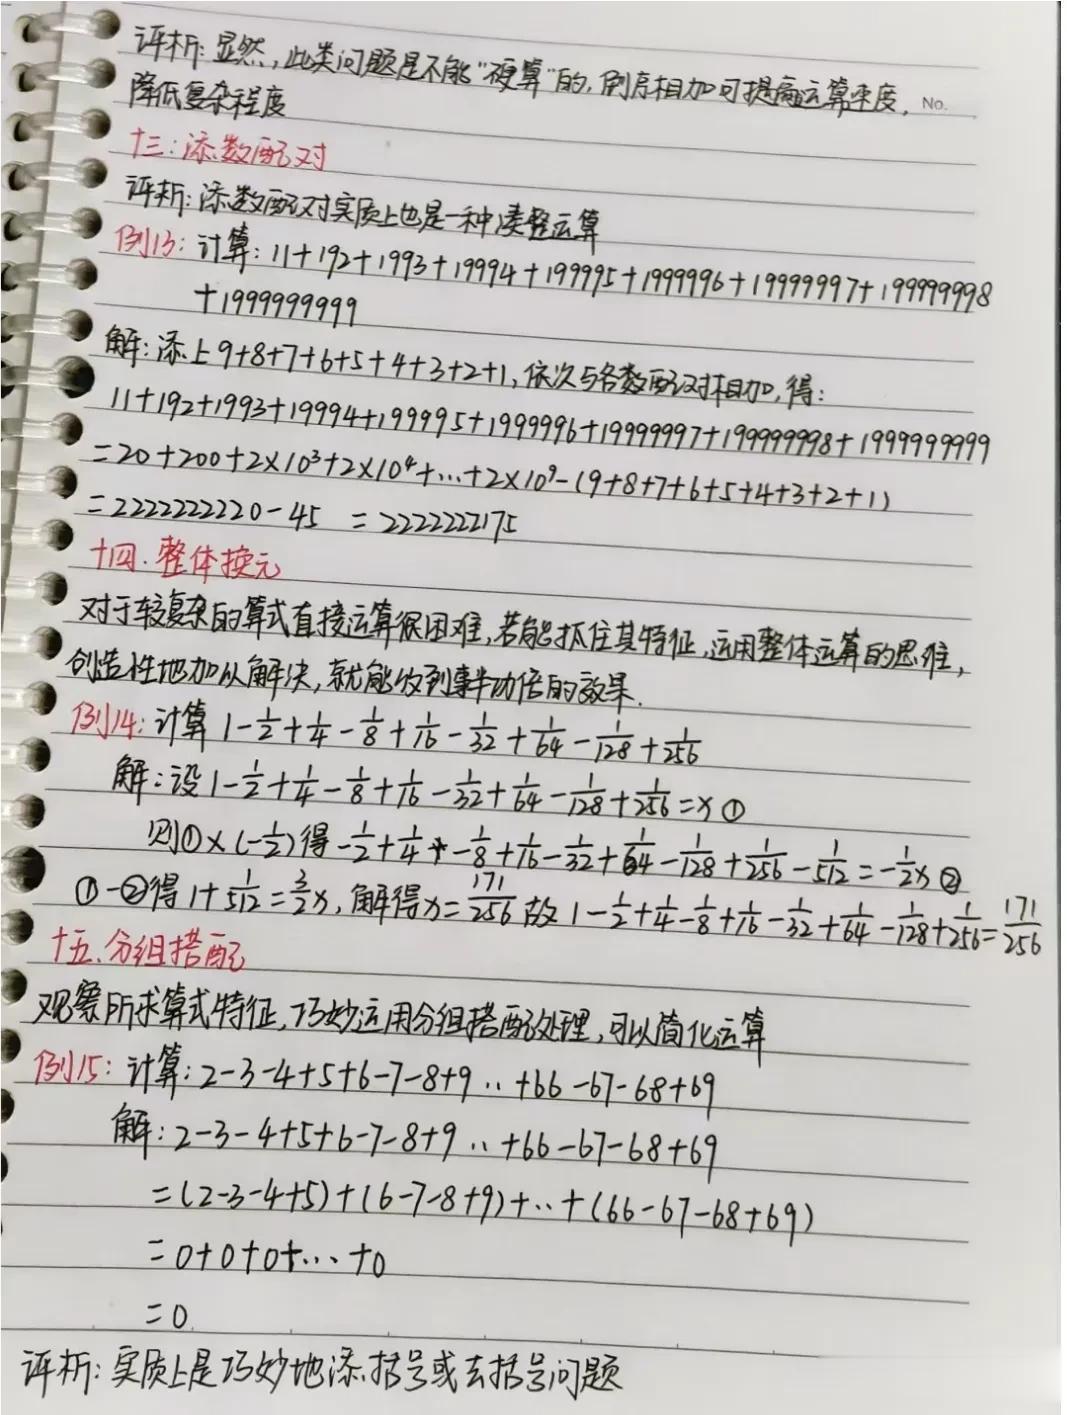 评析:显然,此类问题是不能“硬算”的,倒序相加可提高运算速度,
No.
降低复杂程度
十三:添数配对
评析:添数配对实质上也是一种凑整运算
例13:计算:11+192+1993+19994+199995+1999996+19999997+199999998
+1999999999
解:添上9+8+7+6+5+4+3+2+1,依次与各数配对相加,得:
11+192+1993+19994+199995+1999996+19999997+199999998+1999999999
=20+200+2×10³+2×10⁴+...+2×10⁹-(9+8+7+6+5+4+3+2+1)
=2222222220-45 =2222222175
十四.整体换元
对于较复杂的算式直接运算很困难,若能抓住其特征,运用整体运算的思维,
创造性地加以解决,就能收到事半功倍的效果.
例14:计算1-1/2+1/4-1/8+1/16-1/32+1/64-1/128+1/256
解:设1-1/2+1/4-1/8+1/16-1/32+1/64-1/128+1/256=x ①
则①×(-1/2)得-1/2+1/4-1/8+1/16-1/32+1/64-1/128+1/256-1/512=-1/2x ②
①-②得1+1/512=3/2x,解得x=171/256 故1-1/2+1/4-1/8+1/16-1/32+1/64-1/128+1/256=171/256
十五.分组搭配
观察所求算式特征,巧妙运用分组搭配处理,可以简化运算
例15:计算:2-3-4+5+6-7-8+9..+66-67-68+69
解:2-3-4+5+6-7-8+9..+66-67-68+69
=(2-3-4+5)+(6-7-8+9)+..+(66-67-68+69)
=0+0+0+...+0
=0
评析:实质上是巧妙地添括号或去括号问题